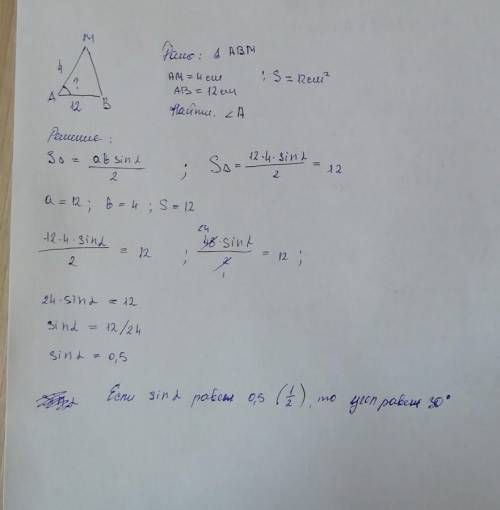 M
Дано: Δ ABM
4
AM = 4 см ; S = 12 см²
?
A B
AB = 12 см
12
Найти: ∠A
Решение:
SΔ = ab sinα / 2 ; SΔ = 12·4·sinα / 2 = 12
a = 12 ; b = 4 ; S = 12
12·4·sinα / 2 = 12 ; 24 48·sinα / 2 1 = 12 ;
24·sinα = 12
sinα = 12/24
sinα = 0,5
Если sinα равен 0,5 (1/2), то угол равен 30°